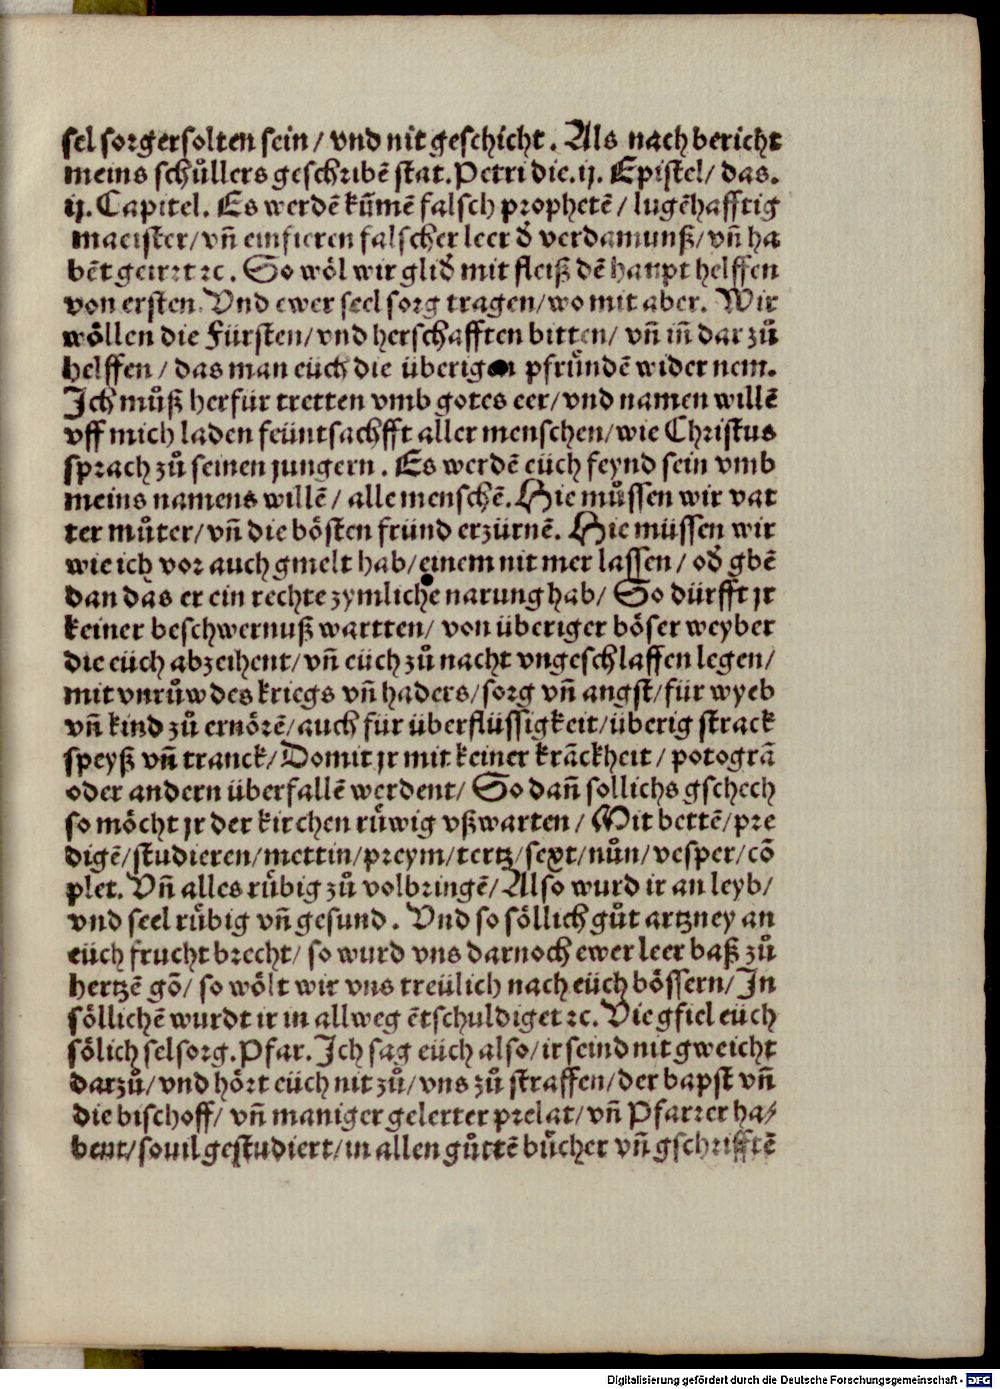 sel sorger solten sein / vnd nit geschicht. Als nach bericht
meins schůllers geschribē stat. Petri die. ij. Epistel / das.
ij. Capitel. Es werdē kūmē falsch prophetē / lugēhafftig
maeister / vñ einfieren falscher leer d̄ verdamunß / vñ ha
bēt geirrt ꝛc. So wöl wir glid̄ mit fleiß dē haupt helffen
von ersten. Vnd ewer seel sorg tragen / wo mit aber. Wir
wöllen die Fürsten / vnd herschafften bitten / vñ in̄ dar zů
helffen / das man eüch die überigen pfründē wider nem.
Ich můß herfür tretten vmb gotes eer / vnd namen willē
vff mich laden feüntsachfft aller menschen / wie Christus
sprach zů seinen jungern. Es werdē eüch feynd sein vmb
meins namens willē / alle menschē. Hie můssen wir vat
ter můter / vñ die bösten fründ erzürnē. Hie müssen wir
wie ich vor auch gmelt hab / einem nit mer lassen / od̄ gbē
dan das er ein rechte zymliche narung hab / So dürfft jr
keiner beschwernuß wartten / von überiger böser weyber
die eüch abzeihent / vñ eüch zů nacht vngeschlaffen legen /
mit vnrůw des kriegs vñ haders / sorg vñ angst / für wyeb
vñ kind zů ernörē / auch für überflüssigkeit / überig strack
speyß vñ tranck / Domit jr mit keiner krāckheit / potogrā
oder andern überfallē werdent / So dañ sollichs gschech
so möcht jr der kirchen růwig vßwarten / Mit bettē / pre
digē / studieren / mettin / preym / tertz / sext / nůn / vesper / cō
plet. Vñ alles růbig zů volbringē / Also wurd ir an leyb /
vnd seel růbig vñ gesund. Vnd so söllich gůt artzney an
eüch frucht brecht / so wurd vns darnoch ewer leer baß zů
hertzē gō / so wölt wir vns treülich nach eüch bössern / In
söllichē wurdt ir in allweg ētschuldiget ꝛc. Vie gfiel eüch
sölich selsorg. Pfar. Ich sag eüch also / ir seind nit gweicht
darzů / vnd hört eüch nit zů / vns zů straffen / der bapst vñ
die bischoff / vñ maniger gelerter prelat / vñ Pfarrer ha⸗
bent / souil gestudiert / in allen gůttē bůcher vñ gschrifftē
Digitalisierung gefördert durch die Deutsche Forschungsgemeinschaft - DFG